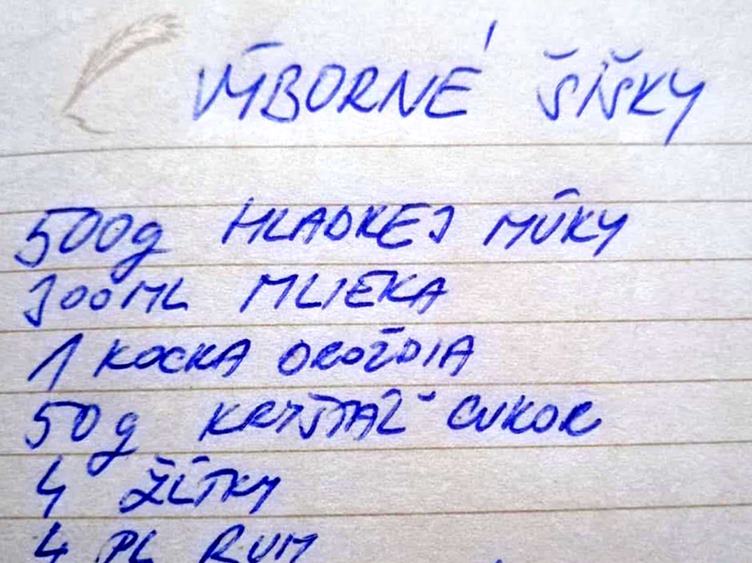 VÝBORNÉ ŠIŠKY
500g HLADKEJ MÚKY
300ML MLIEKA
1 KOCKA DROŽDIA
50g KRYŠTÁĽ CUKOR
4 ŽĹTKY
4 PL RUM